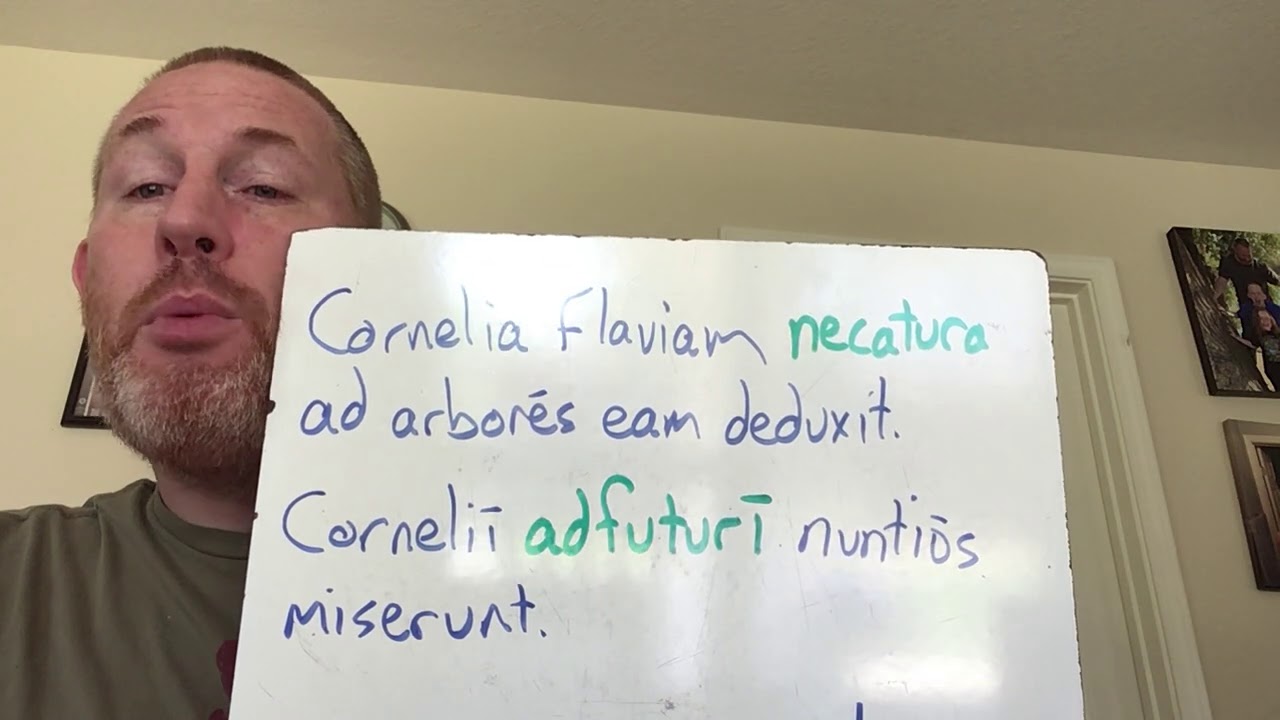 Cornelia Flaviam necatura
ad arborēs eam deduxit.
Corneliī adfuturī nuntiōs
miserunt.